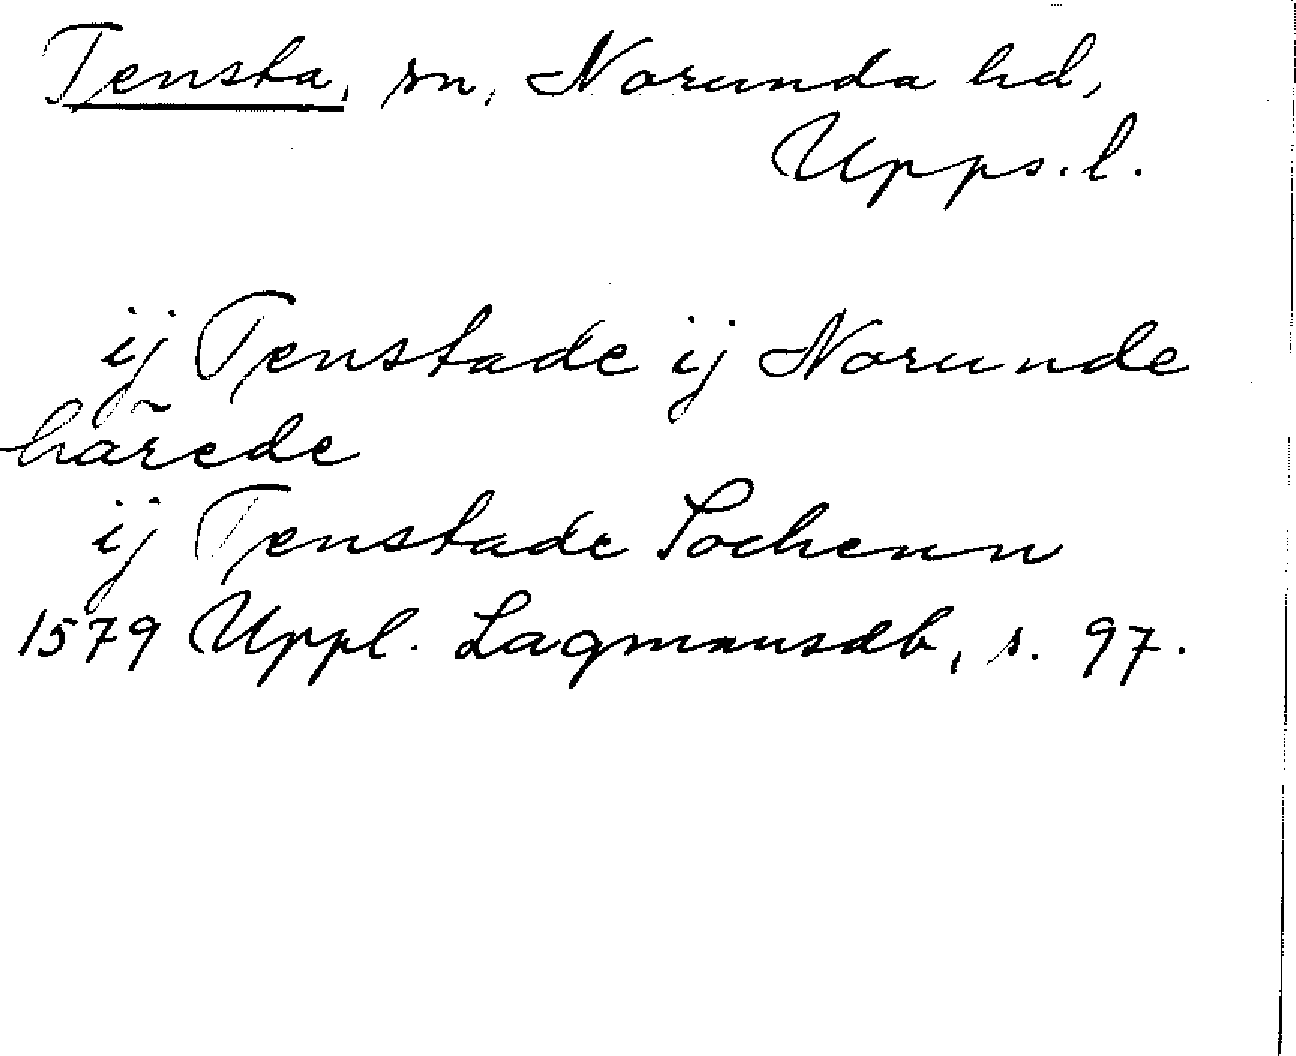 Tensta, sn, Norunda hd,
Upps. l.
ij Tenstade ij Norunde
hãrede
ij Tenstade Sochenn
1579 Uppl. Lagmansdb, s. 97.